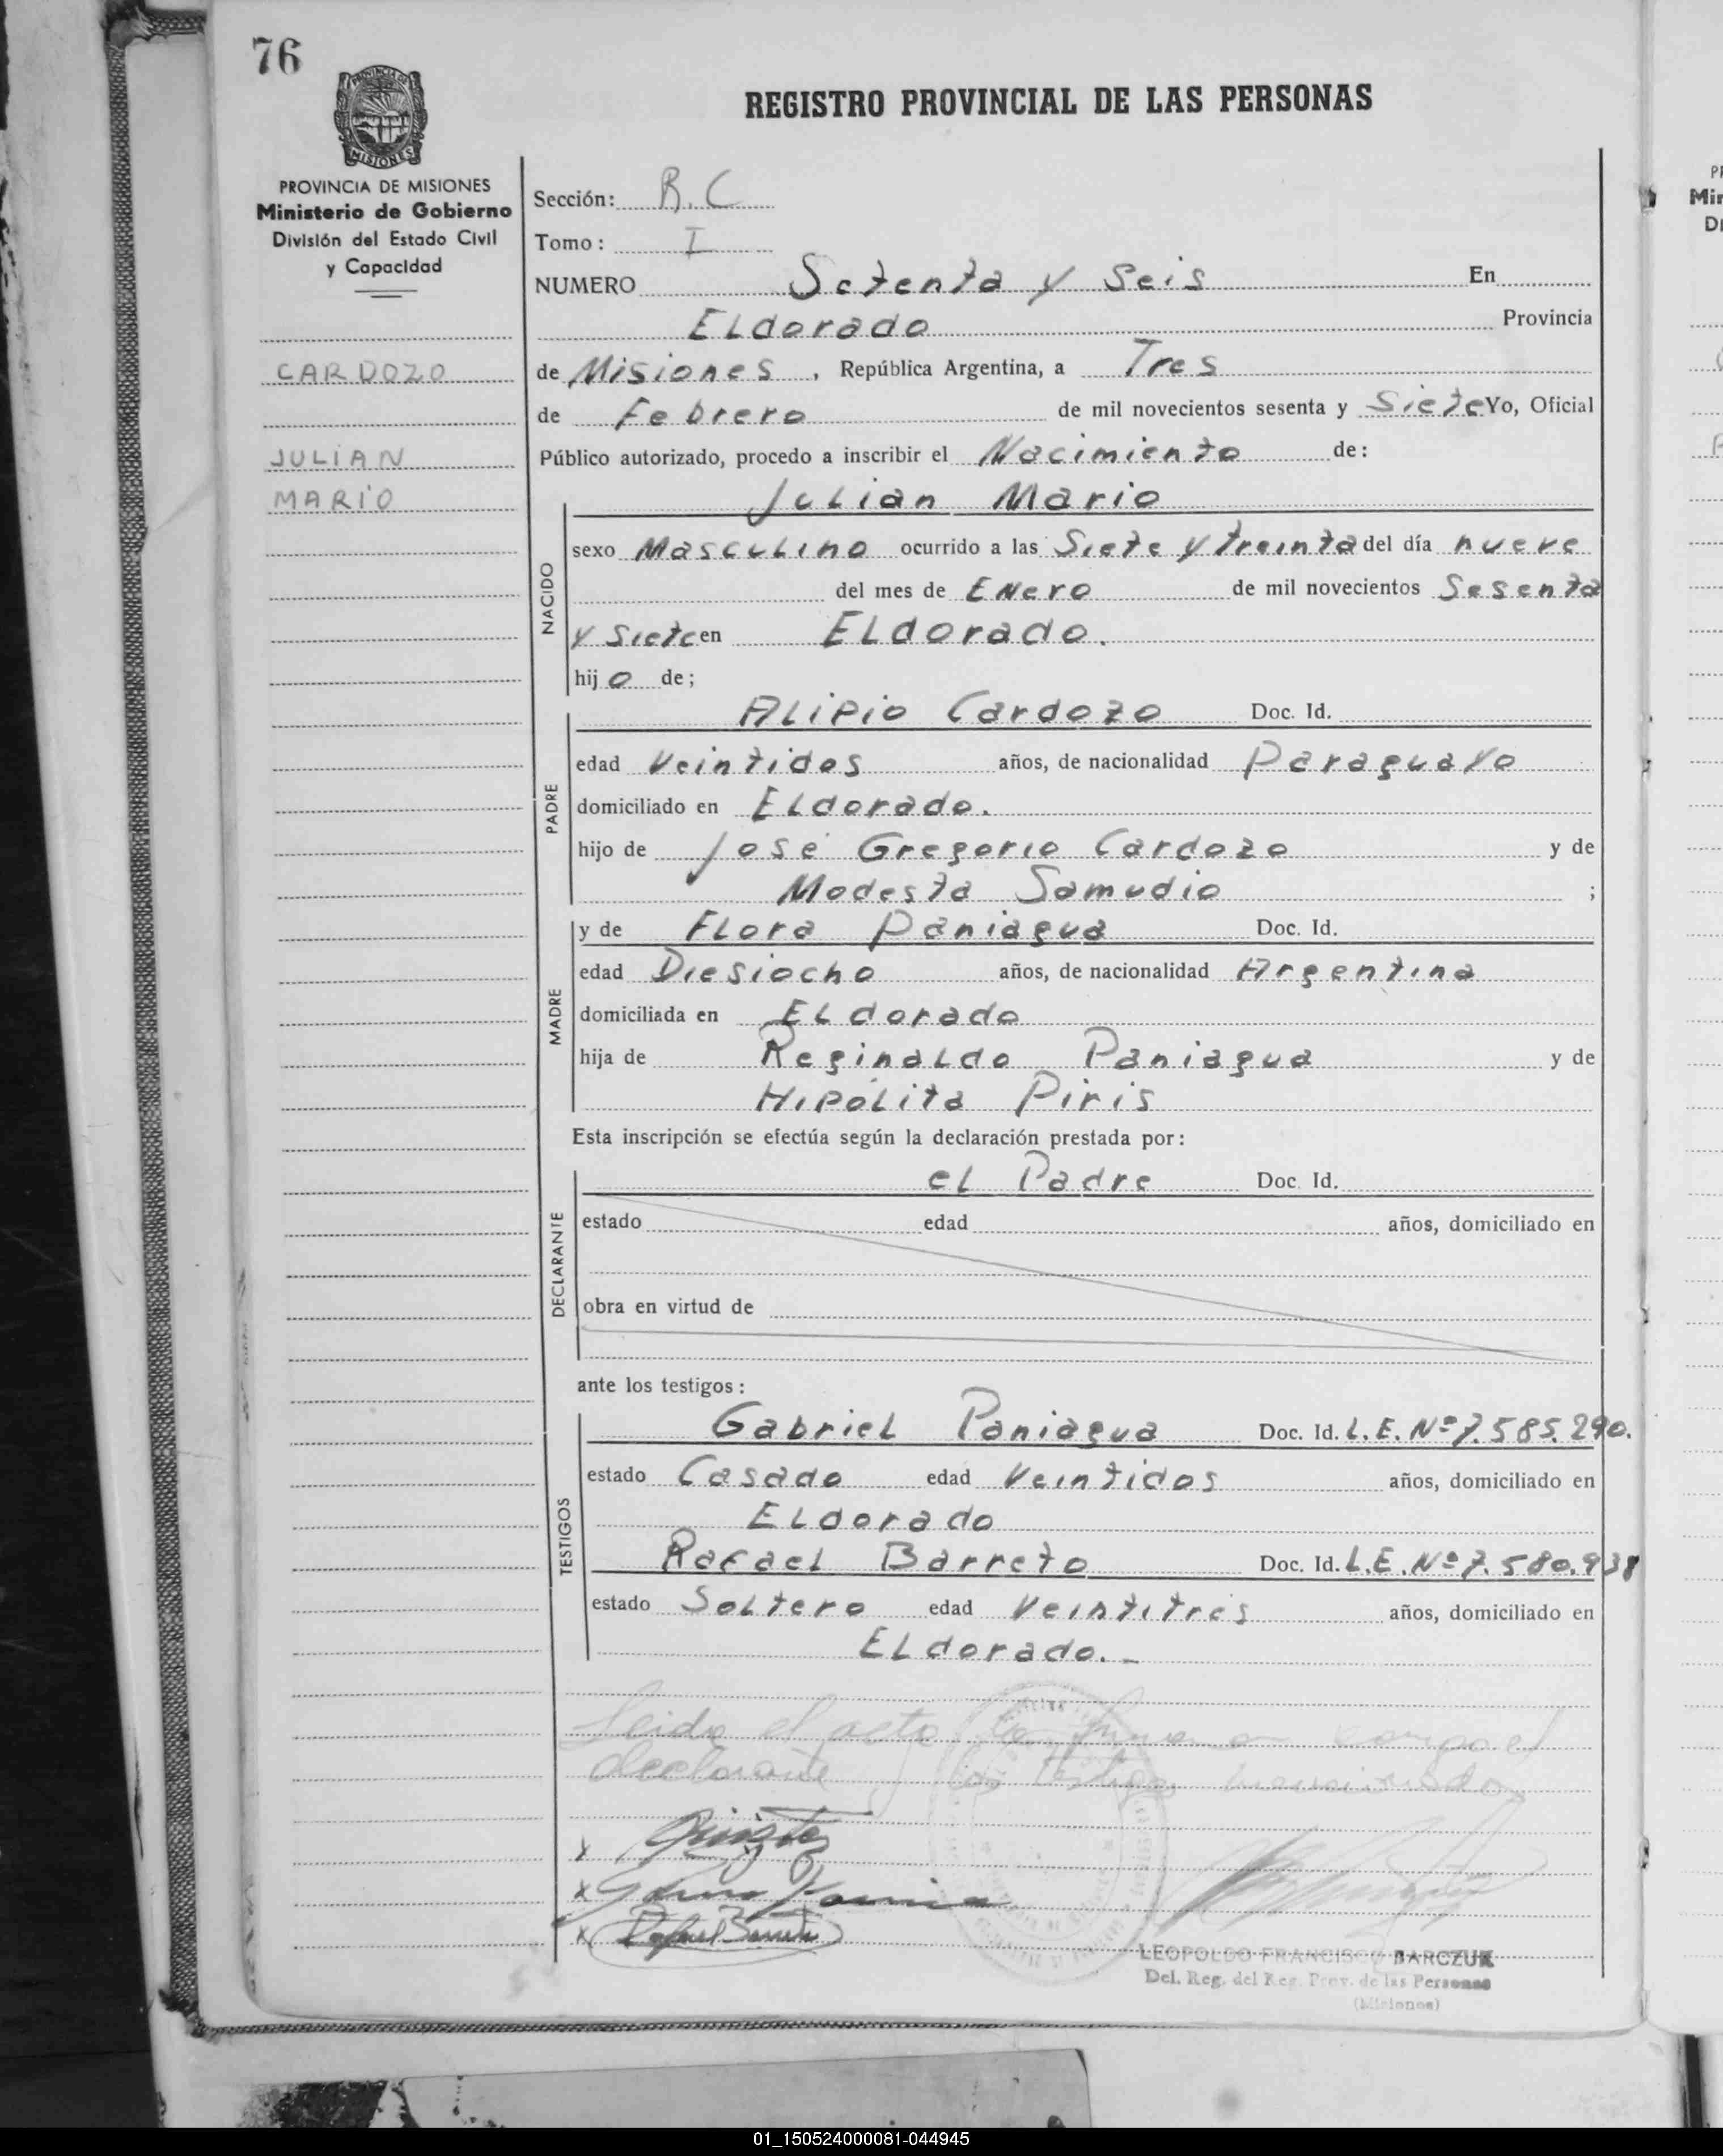 76
REGISTRO PROVINCIAL DE LAS PERSONAS
PROVINCIA DE MISIONES
Ministerio de Gobierno
División del Estado Civil
y Capacidad
CARDOZO
JULIAN
MARIO
Sección: R.C
Tomo: I
NUMERO Setenta y Seis En
ELdorado Provincia
de Misiones, República Argentina, a Tres
de Febrero de mil novecientos sesenta y Siete Yo, Oficial
Público autorizado, procedo a inscribir el Nacimiento de:
Julian Mario
NACIDO
sexo Masculino ocurrido a las Siete y treinta del día nueve
del mes de Enero de mil novecientos Sesenta
y Siete en ELdorado.
hijo de;
PADRE
Alipio Cardozo Doc. Id.
edad Veintidos años, de nacionalidad Paraguayo
domiciliado en ELdorado.
hijo de José Gregorio Cardozo y de
Modesta Samudio ;
MADRE
y de Flora Paniagua Doc. Id.
edad Diesiocho años, de nacionalidad Argentina
domiciliada en ELdorado
hija de Reginaldo Paniagua y de
Hipólita Piris
Esta inscripción se efectúa según la declaración prestada por:
DECLARANTE
el Padre Doc. Id.
estado edad años, domiciliado en
obra en virtud de
ante los testigos:
TESTIGOS
Gabriel Paniagua Doc. Id. L.E. Nº 7.585.290.
estado Casado edad Veintidos años, domiciliado en
ELdorado
Rafael Barreto Doc. Id. L.E. Nº 7.580.938
estado Soltero edad Veintitres años, domiciliado en
ELdorado.-
Leida el acta la firman conmigo el
declarante y los testigos mencionados
Rafael Barreto
LEOPOLDO FRANCISCO BARCZUK
Del. Reg. del Reg. Prov. de las Personas
(Misiones)
01_150524000081-044945